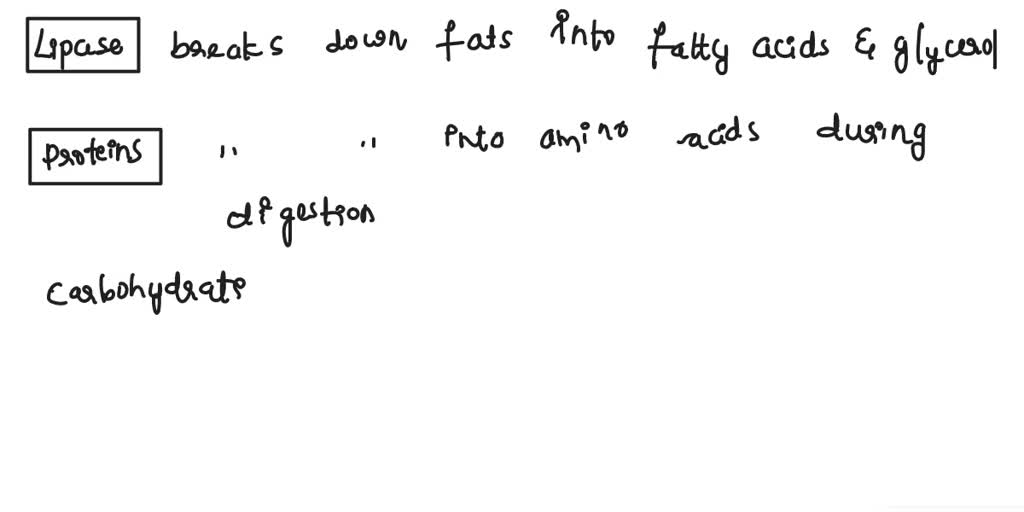 Lipase breaks down fats into fatty acids & glycerol
Proteins " " into amino acids during
digestion
carbohydrate